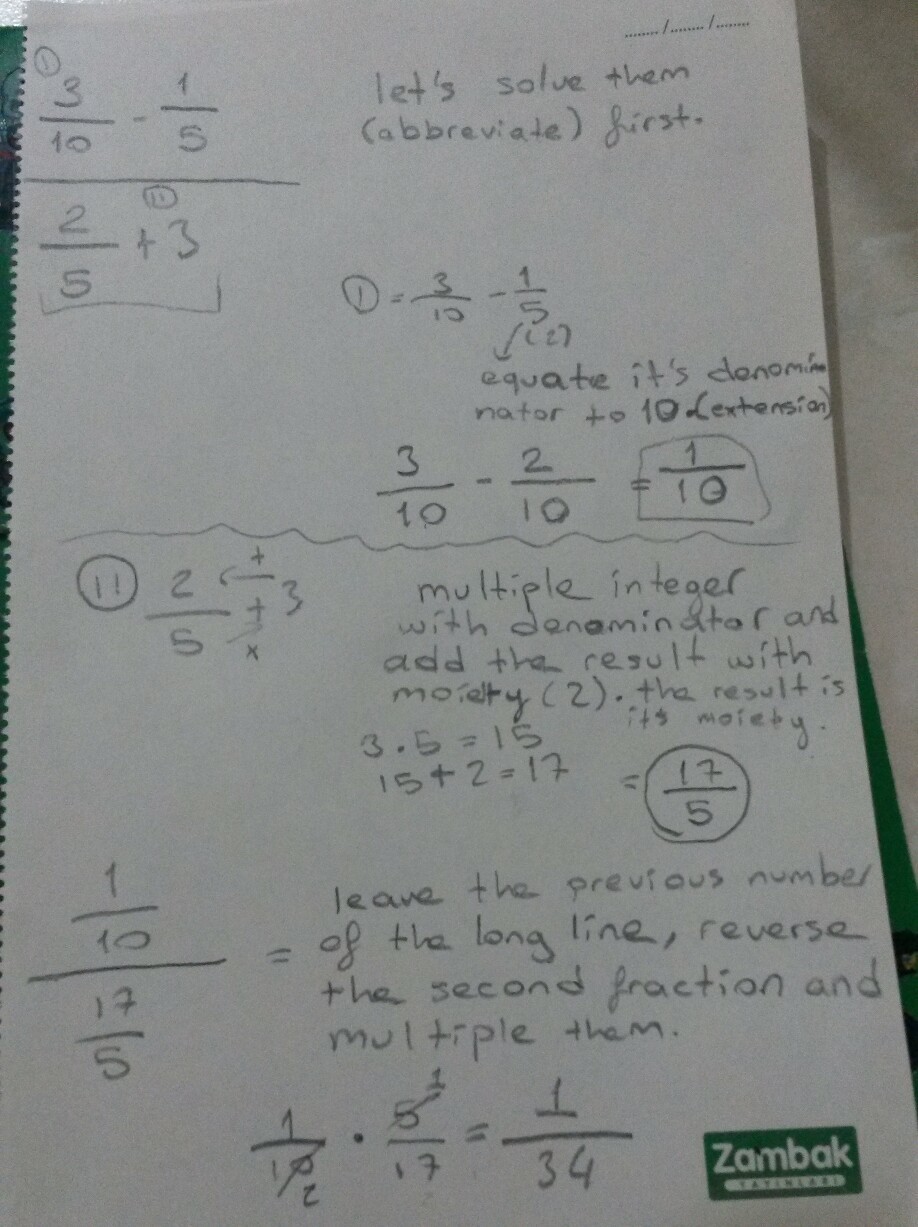 ......../......../........
① 3/10 - 1/5
let's solve them
(abbreviate) first.
⑪ 2/5 + 3
① = 3/10 - 1/5
(2)
equate it's denomin
nator to 10. (extension)
3/10 - 2/10 = 1/10
⑪ 2/5 + 3
+
x
multiple integer
with denominator and
add the result with
moiety (2). the result is
its moiety.
3 . 5 = 15
15 + 2 = 17
= 17/5
1/10
17/5
=
leave the previous number
of the long line, reverse
the second fraction and
multiple them.
1/10 . 5/17 = 1/34
1
2
Zambak
YAYINLARI